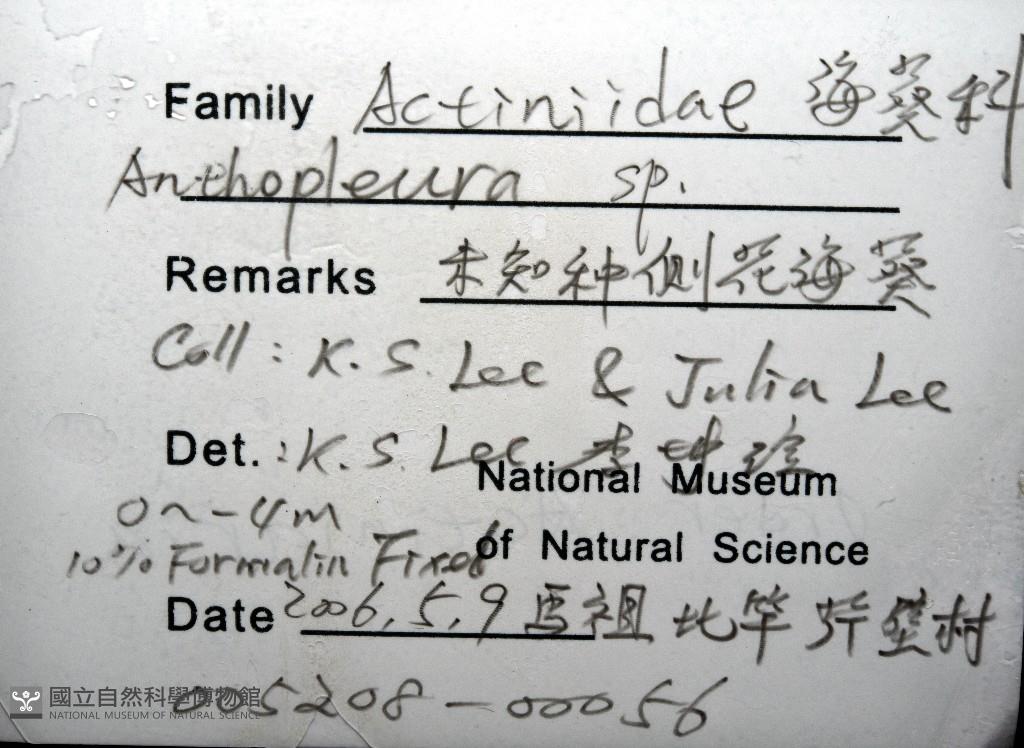 Family Actiniidae 海葵科
Anthopleura sp.
Remarks 未知种側花海葵
Coll : K. S. Lee & Julia Lee
Det. : K. S. Lee 李坤瑄
National Museum
0~-4m
of Natural Science
10% Formalin Fixed
Date 2006.5.9 馬祖 北竿 芹壁村
005208-00056
國立自然科學博物館
NATIONAL MUSEUM OF NATURAL SCIENCE